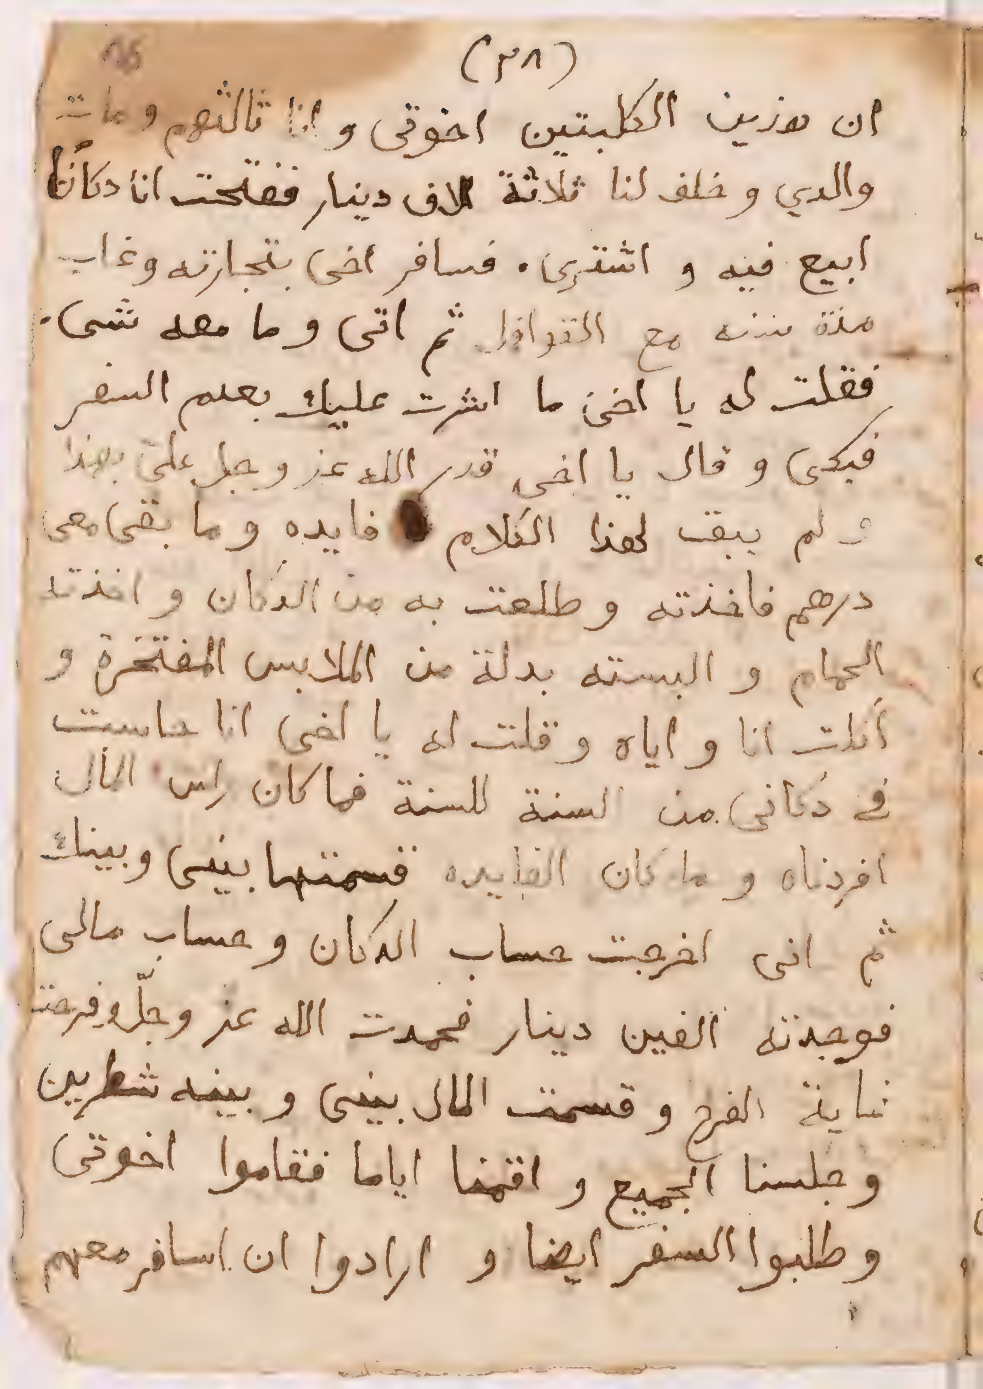 (٣٨)
ان هذين الكلبتين اخوتي و انا ثالثهم و مات
والدي و خلف لنا ثلاثة الاف دينار ففتحت انا دكانًا
ابيع فيه و اشتري. فسافر اخى بتجارته وغاب
مدة سنه مع القوافل ثم اتى و ما معه شى.
فقلت له يا اخى ما اشرت عليك بعدم السفر
فبكى و قال يا اخى قدر الله عز وجل علىّ بهذا
و لم يبقت لهذا الكلام فايده و ما بقى معى
درهم فاخذته و طلعت به من الدكان و اخذته
الحمام و البسته بدلة من الملابس المفتخرة و
أكلت انا و اياه و قلت له يا اخى انا حاسبت
في دكانى من السنة للسنة فما كان راس المال
افردناه و ما كان الفايده قسمتها بينى وبينك
ثم انى اخرجت حساب الدكان و حساب مالى
فوجدته الفين دينار فحمدت الله عز وجلّ وفرحت
غاية الفرح و قسمت المال بينى و بينه شطرين
و جلسنا الجميع و اقمنا اياما فقاموا اخوتى
و طلبوا السفر ايضا و ارادوا ان اسافر معهم